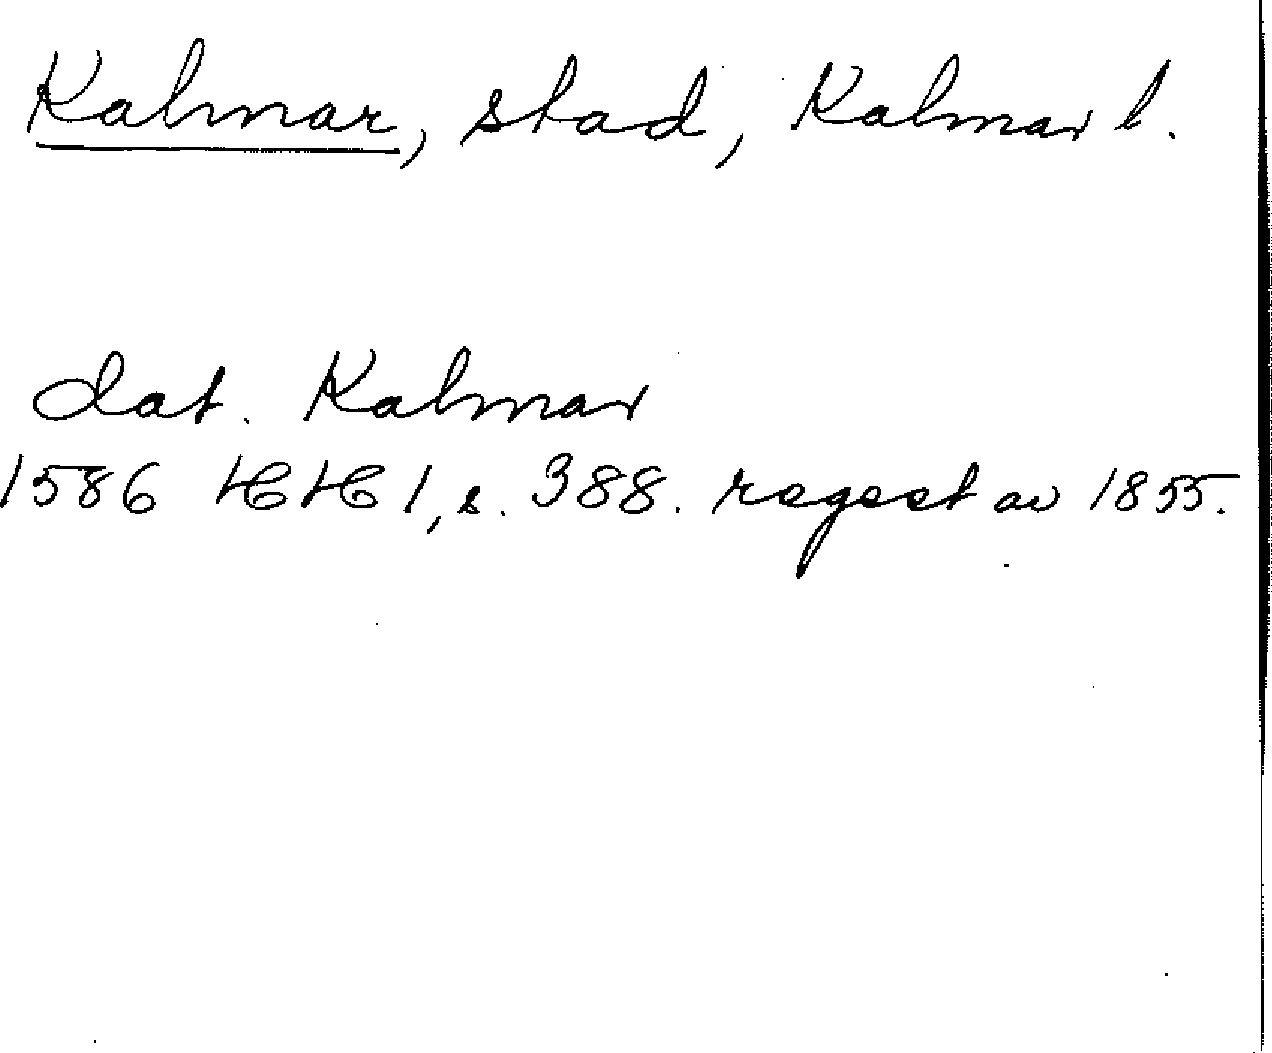 Kalmar, stad, Kalmar l.
dat. Kalmar
1586 HH 1, s. 388. regest av 1855.